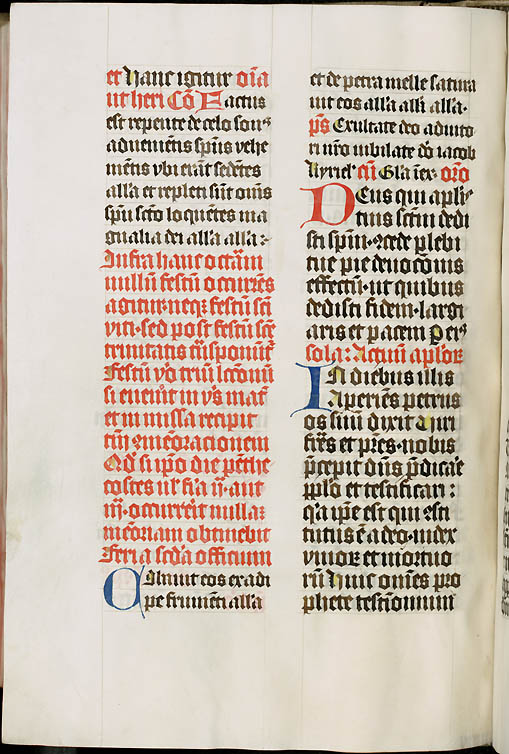 et hanc igitur om̄ia
ut heri Cō Factus
est repente de celo son⁹
aduenientis sp̄us vehe
mētis vbi erāt sedētes
alla et repleti sūt om̄s
sp̄u sc̄to loquētes ma
gnalia dei alla alla:
Infra hanc octauā
nullū festū occurrēs
agitur neqꝫ festū sc̄i
viti· sed post festū sc̄e
trinitatis trāsponūt᷑
Festū v̊o triū lecconū
si euenit in vs̄ mat᷑
et in missa recipit
tm̄ ꝯmēoracionem
Qd̄ si ip̄o die pēthe
costes ul̓ fr̄ia ij· aut
iij· occurrerit nullaꝫ
mēoriam obtinebit
Feria sc̄da officium
Cibauit eos ex adi
pe frumēti alla
et de petra melle satura
uit eos alla alla alla·
p̄s Exultate deo adiuto
ri nr̄o iubilate dō iacob
Kyriel᷑ cū Gl̄a ī ex· orō
Deus qui apl̄is
tuis sc̄tm dedi
sti sp̄m· ꝯcede plebi
tue pie deuocōnis
effectū· ut quibus
dedisti fidem· largi
aris et pacem Per
sola: Actuū apl̄oꝝ
In diebus illis
Aperiēs petrus
os suū dixit Viri
fr̄es et pr̄es· nobis
p̄cepit dn̄s p̄dicare
pp̄lo et testificari:
q̄a ip̄e est qui ꝯsti
tutus ē a deo iudex
viuor et mortuo
rū Huic om̄es pro
phete testimonium